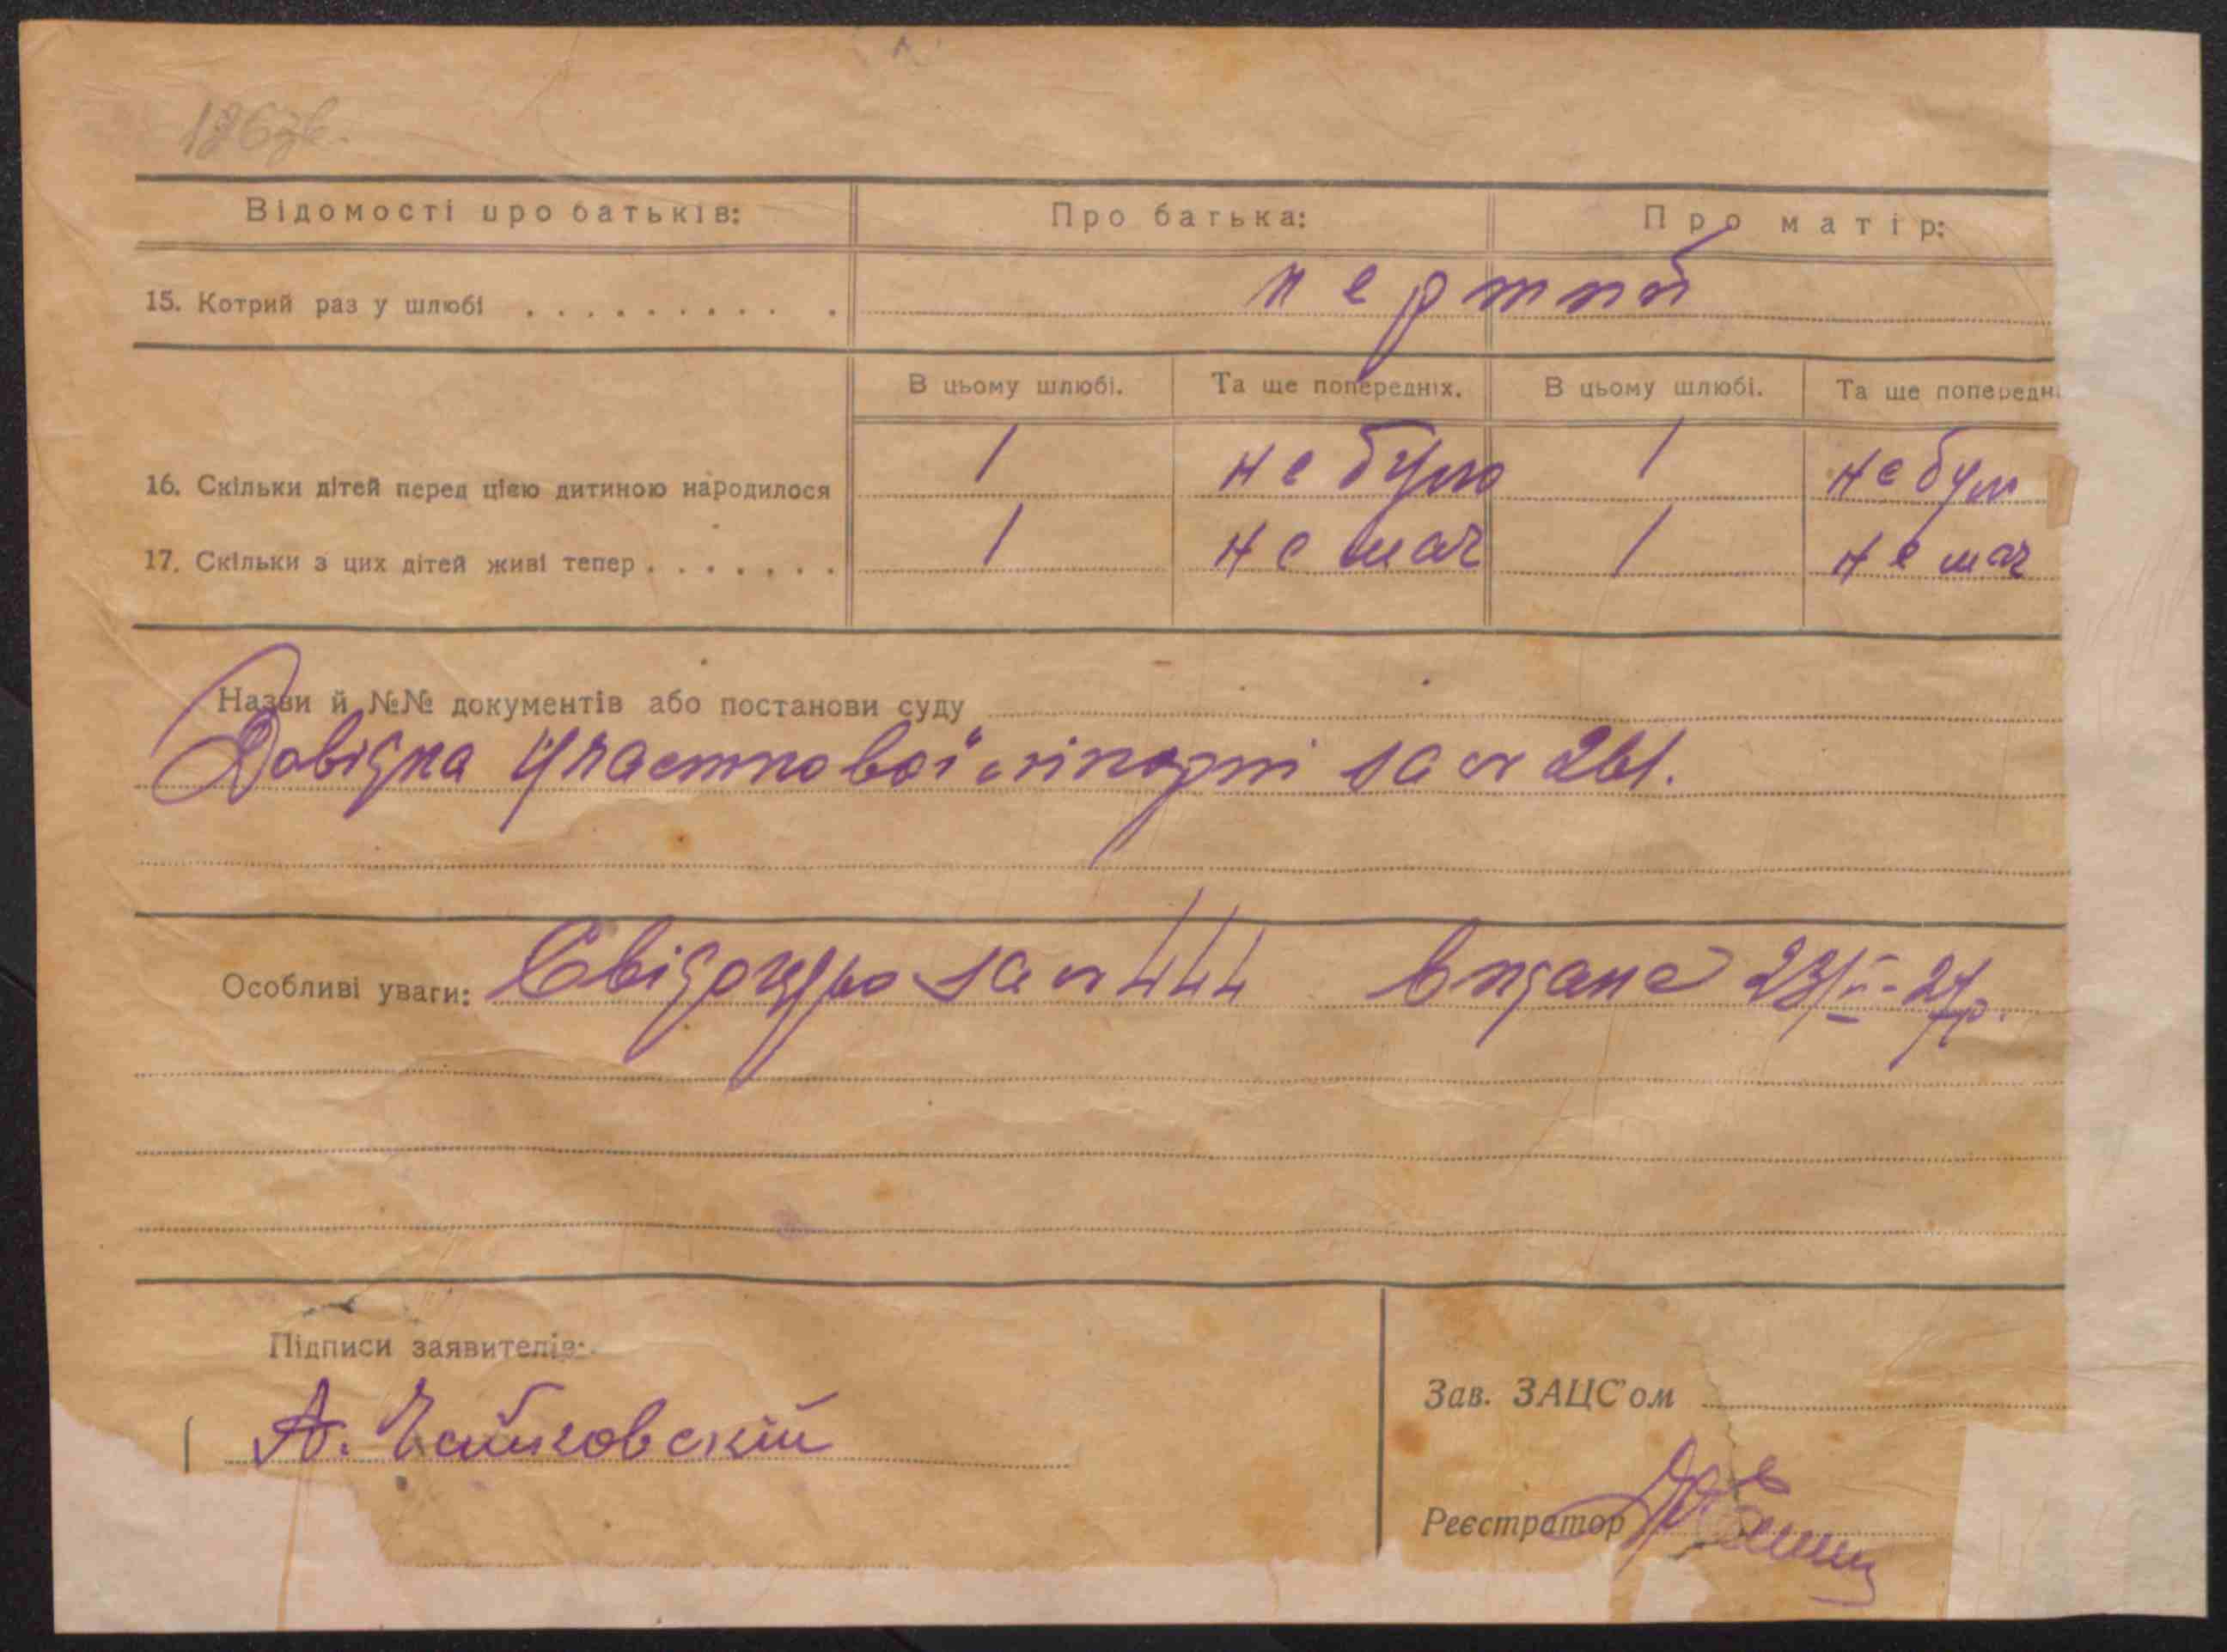 126зв.
Відомості про батьків: Про батька: Про матір:
15. Котрий раз у шлюбі . . . . . . . . . . перший
В цьому шлюбі. Та ще попередніх. В цьому шлюбі. Та ще попередн
16. Скільки дітей перед цією дитиною народилося 1 не було 1 не бул
17. Скільки з цих дітей живі тепер . . . . . . . 1 немає 1 немає
Назви й №№ документів або постанови суду
Довідка участкової за № 261.
Особливі уваги: Свідоцтво за № 444 видане 23/V-27р.
Підписи заявителів:
А. Чайковский
Зав. ЗАЦС'ом
Реєстратор